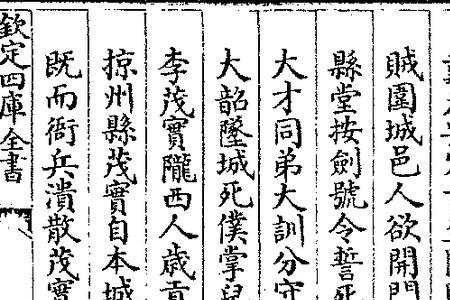 賊圍城邑人欲開門
縣堂按劍號令誓死
大才同弟大訓分守
大韶墜城死僕掌兒
李茂實隴西人歲貢
掠州縣茂實自本城
既而衙兵潰散茂實
欽定四庫全書